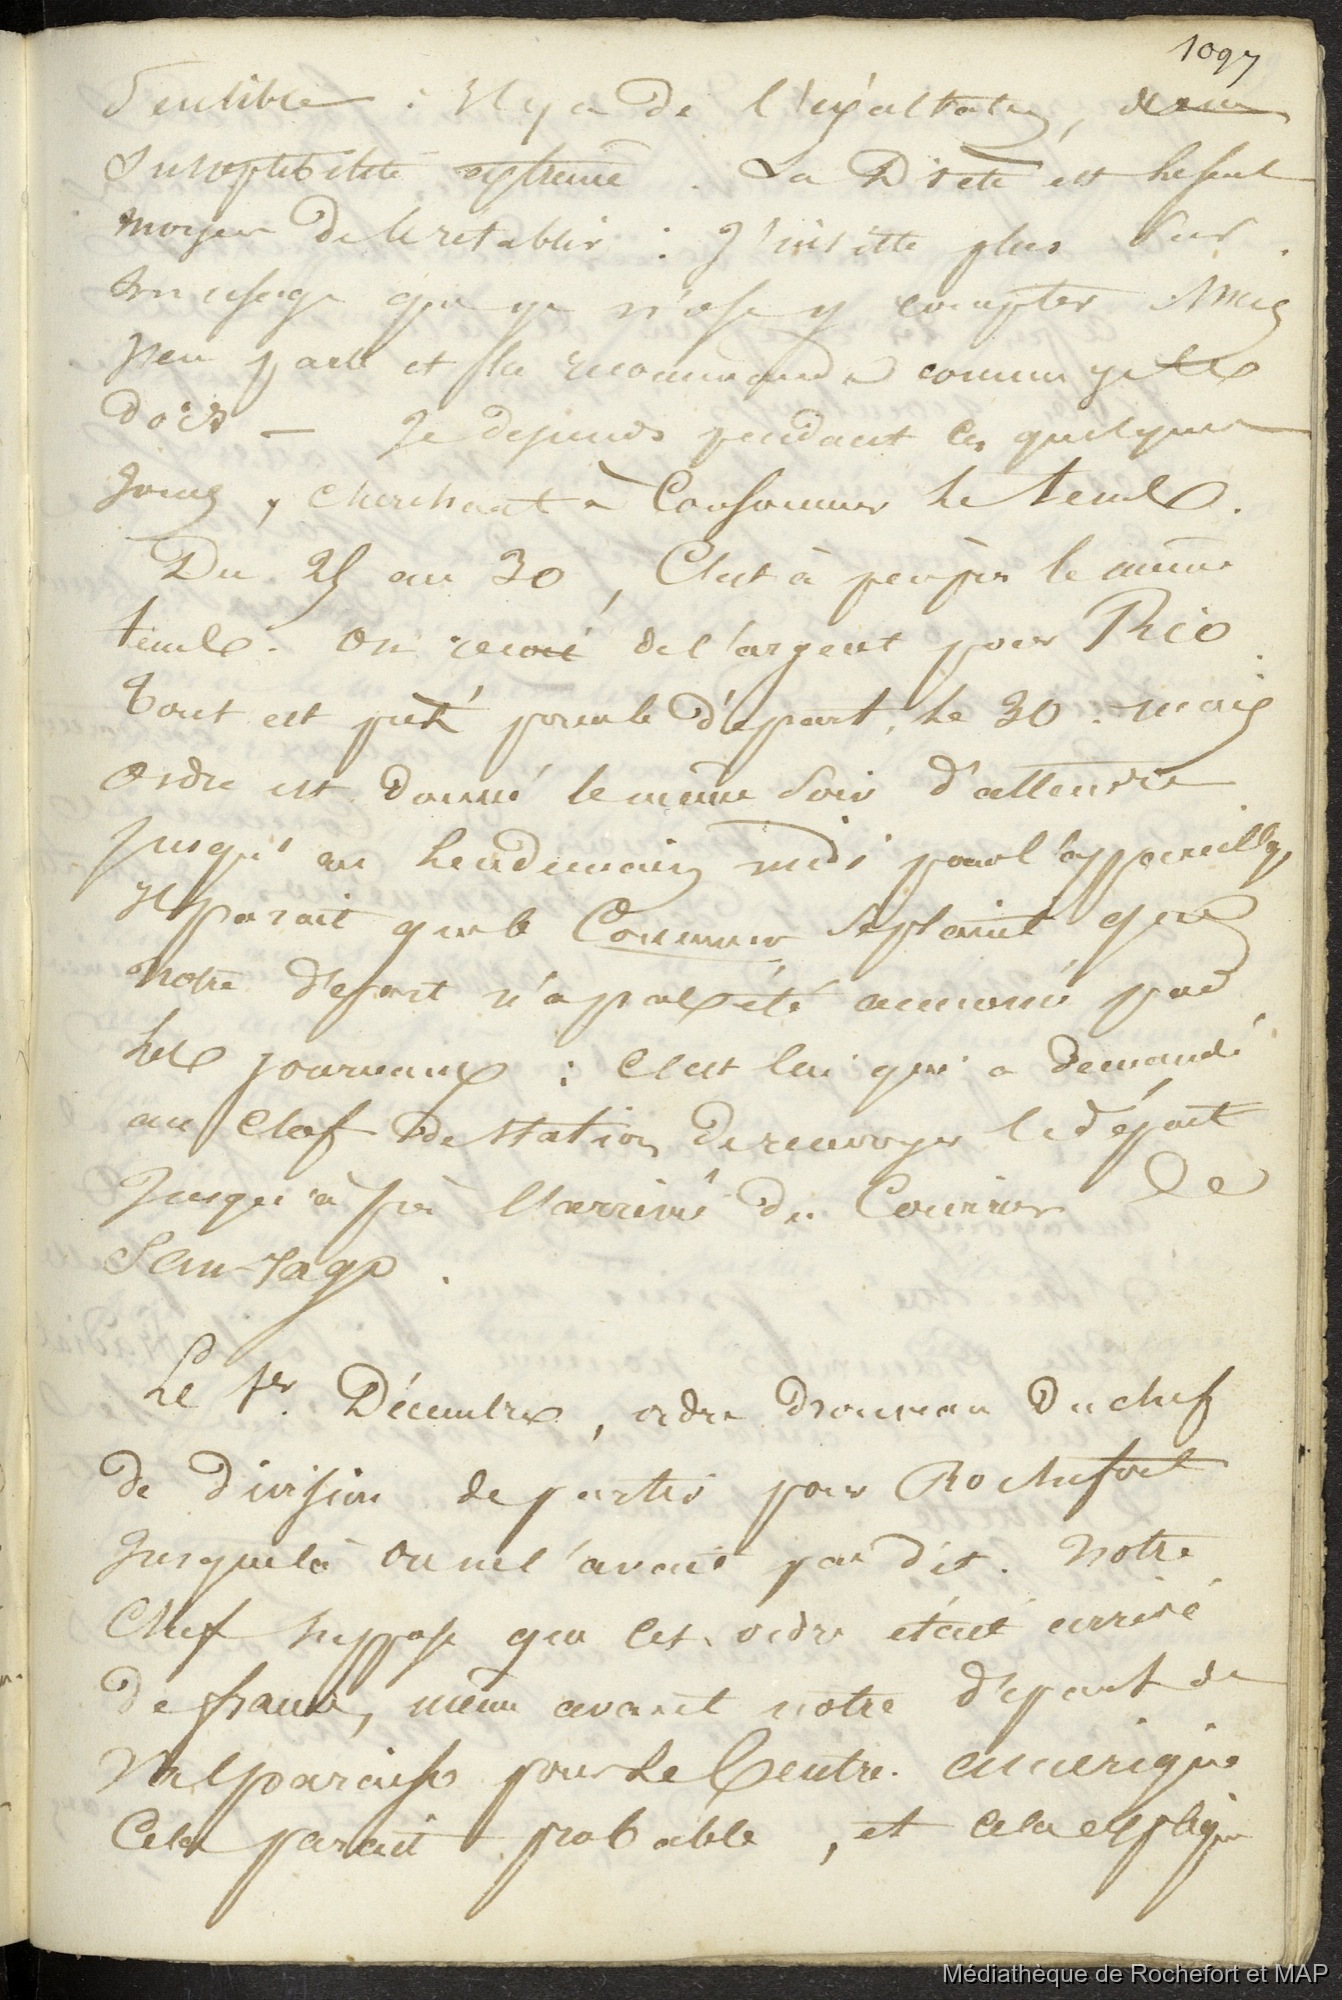 1097
Sensible : Il y a de l'exaltation, d'une
Susceptibilité extrême. La Diète est le seul
moyen de le rétablir : J'insiste plus Sur
son usage que je n'ose y compter. Mais
j'en parle et la recommande comme je le
dois — Je depends pendant ces quelques
jours, cherchant à Consommer le tems.
Du 25 au 30, C'est à peu près le même
tems. On recoit de l'argent pour Rio
Tout est prêt pour le départ, le 30. mais
ordre est donné le même Soir d'attendre
jusqu'au lendemain midi pour l'appareillage,
Il parait que le Commerce se plaint que
notre départ n'a pas été annoncé par
les journaux : C'est lui qui a demandé
au Chef de station de renvoyer le départ
jusqu'après l'arrivée du Courrier de
San-Yago.
Le 1er. Décembre, ordre nouveau du chef
de division de partir pour Rochefort
Jusque là on ne l'avait pas dit. Notre
Chef suppose que cet ordre était arrivé
de france, même avant notre départ de
Valparaiso pour le Centre. amerique
Cela parait probable, et cela explique
Médiathèque de Rochefort et MAP